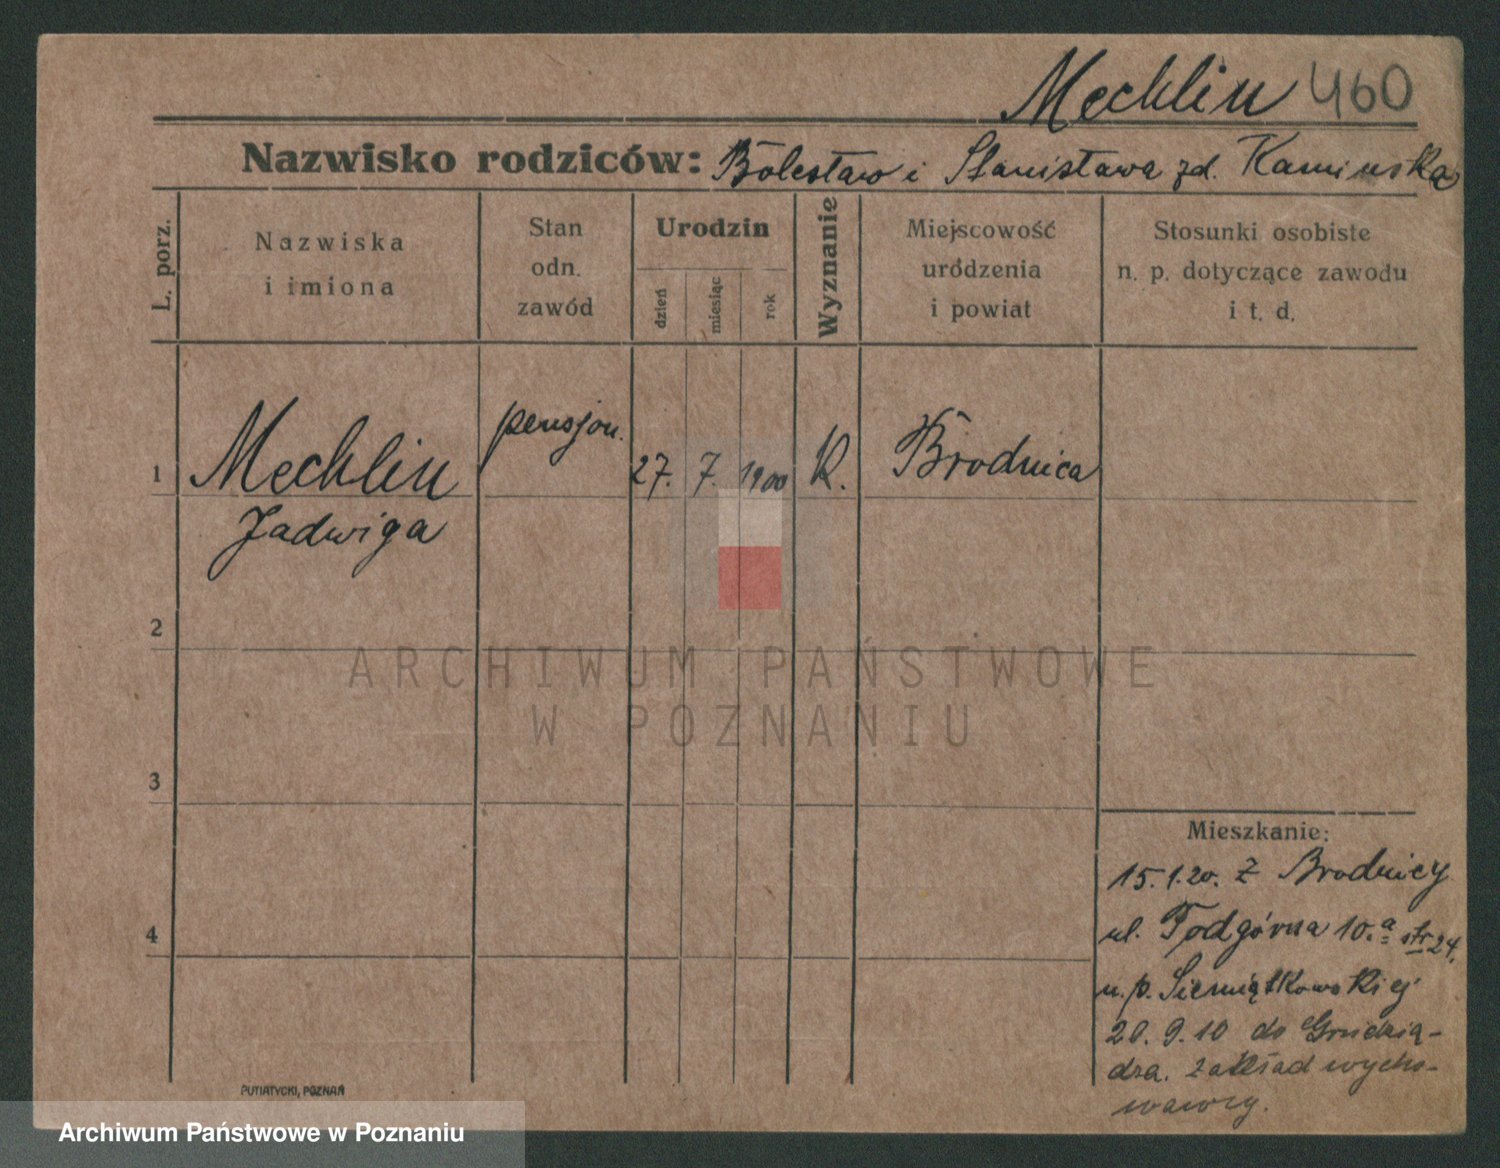 Mechlin 460
Nazwisko rodziców: Bolesław i Stanisława zd. Kamińska
L. porz.
Nazwiska
i imiona
Stan
odn.
zawód
Urodzin
dzień
miesiąc
rok
Wyznanie
Miejscowość
urodzenia
i powiat
Stosunki osobiste
n. p. dotyczące zawodu
i t. d.
1 Mechlin pensjon. 27. 7. 1900 K. Brodnica
Jadwiga
2
ARCHIWUM PAŃSTWOWE
W POZNANIU
3
Mieszkanie:
15.1.20. z Brodnicy
ul. Podgórna 10.a str 24.
u. p. Siemiątkowskiej
4
20. 9. 10 do Grudzią-
dza. zakład wycho-
wawczy.
PUTIATYCKI, POZNAŃ
Archiwum Państwowe w Poznaniu